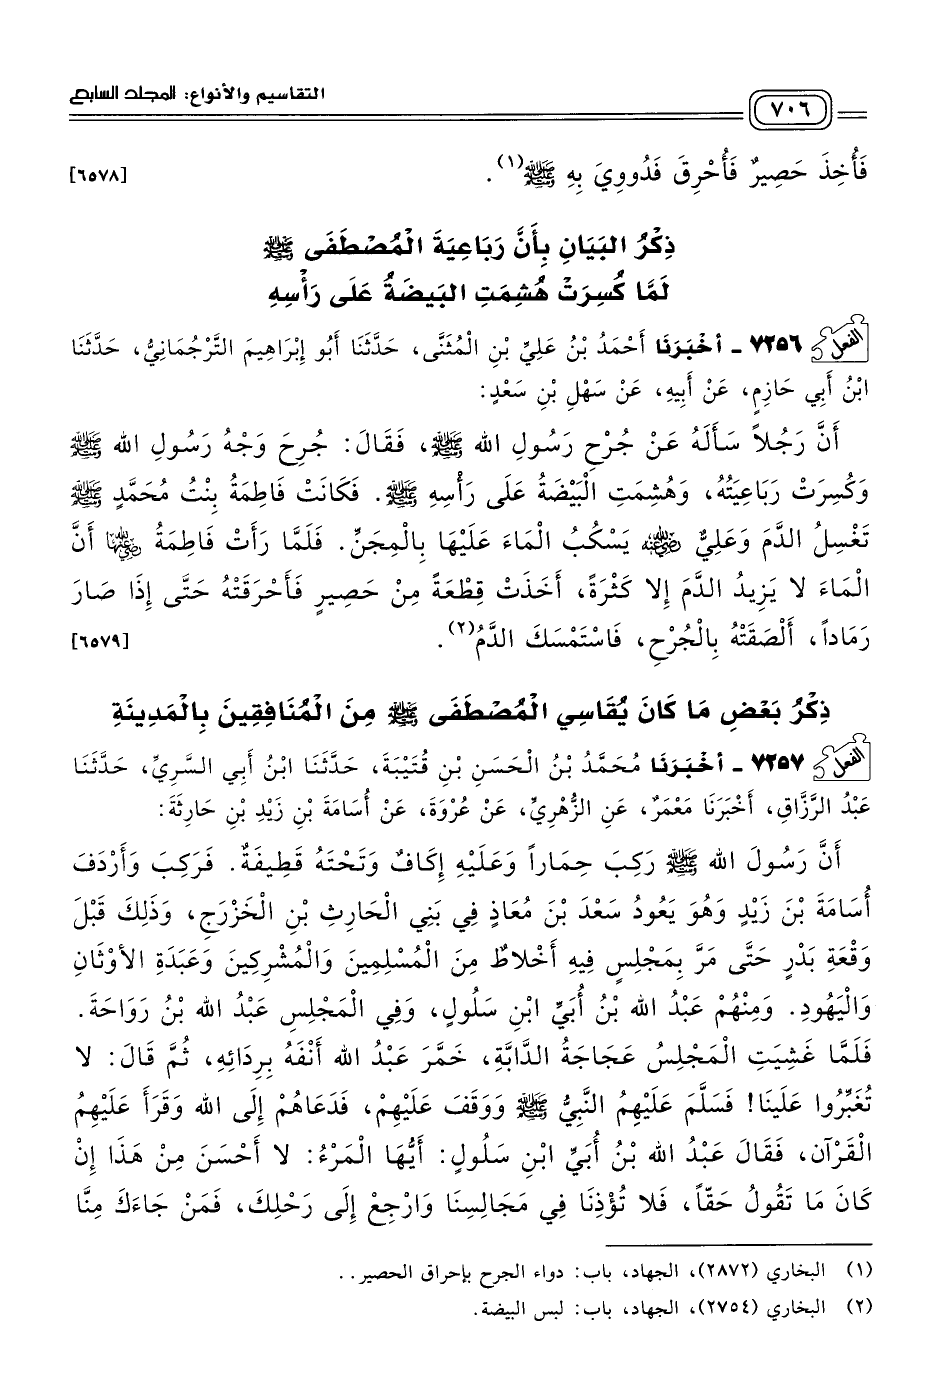 التقاسيم والأنواع: المجلد السابع
٧٠٦
فَأُخِذَ حَصِيرٌ فَأُحْرِقَ فَدُووِيَ بِهِ ﷺ(١). [٦٥٧٨]
ذِكْرُ البَيَانِ بِأَنَّ رَبَاعِيَةَ الْمُصْطَفَى ﷺ
لَمَّا كُسِرَتْ هُشِمَتِ البَيضَةُ عَلَى رَأْسِهِ
الفعل ٧٢٥٦ - أخْبَرَنَا أَحْمَدُ بْنُ عَلِيِّ بْنِ الْمُثَنَّى، حَدَّثَنَا أَبُو إِبْرَاهِيمَ التَّرْجُمَانِيُّ، حَدَّثَنَا
ابْنُ أَبِي حَازِمٍ، عَنْ أَبِيهِ، عَنْ سَهْلِ بْنِ سَعْدٍ:
أَنَّ رَجُلاً سَأَلَهُ عَنْ جُرْحِ رَسُولِ الله ﷺ، فَقَالَ: جُرِحَ وَجْهُ رَسُولِ الله ﷺ
وَكُسِرَتْ رَبَاعِيَتُهُ، وَهُشِمَتِ الْبَيْضَةُ عَلَى رَأْسِهِ ﷺ. فَكَانَتْ فَاطِمَةُ بِنْتُ مُحَمَّدٍ ﷺ
تَغْسِلُ الدَّمَ وَعَلِيٌّ رضي الله عنه يَسْكُبُ الْمَاءَ عَلَيْهَا بِالْمِجَنِّ. فَلَمَّا رَأَتْ فَاطِمَةُ رضي الله عنها أَنَّ
الْمَاءَ لا يَزِيدُ الدَّمَ إِلا كَثْرَةً، أَخَذَتْ قِطْعَةً مِنْ حَصِيرٍ فَأَحْرَقَتْهُ حَتَّى إِذَا صَارَ
رَمَاداً، أَلْصَقَتْهُ بِالْجُرْحِ، فَاسْتَمْسَكَ الدَّمُ(٢). [٦٥٧٩]
ذِكْرُ بَعْضِ مَا كَانَ يُقَاسِي الْمُصْطَفَى ﷺ مِنَ الْمُنَافِقِينَ بِالْمَدِينَةِ
الفعل ٧٢٥٧ - أخْبَرَنَا مُحَمَّدُ بْنُ الْحَسَنِ بْنِ قُتَيْبَةَ، حَدَّثَنَا ابْنُ أَبِي السَّرِيِّ، حَدَّثَنَا
عَبْدُ الرَّزَّاقِ، أَخْبَرَنَا مَعْمَرٌ، عَنِ الزُّهْرِيِّ، عَنْ عُرْوَةَ، عَنْ أُسَامَةَ بْنِ زَيْدِ بْنِ حَارِثَةَ:
أَنَّ رَسُولَ الله ﷺ رَكِبَ حِمَاراً وَعَلَيْهِ إِكَافٌ وَتَحْتَهُ قَطِيفَةٌ. فَرَكِبَ وَأَرْدَفَ
أُسَامَةَ بْنَ زَيْدٍ وَهُوَ يَعُودُ سَعْدَ بْنَ مُعَاذٍ فِي بَنِي الْحَارِثِ بْنِ الْخَزْرَجِ، وَذَلِكَ قَبْلَ
وَقْعَةِ بَدْرٍ حَتَّى مَرَّ بِمَجْلِسٍ فِيهِ أَخْلاطٌ مِنَ الْمُسْلِمِينَ وَالْمُشْرِكِينَ وَعَبَدَةِ الأوْثَانِ
وَالْيَهُودِ. وَمِنْهُمْ عَبْدُ الله بْنُ أُبَيِّ ابْنِ سَلُولٍ، وَفِي الْمَجْلِسِ عَبْدُ الله بْنُ رَوَاحَةَ.
فَلَمَّا غَشِيَتِ الْمَجْلِسُ عَجَاجَةُ الدَّابَّةِ، خَمَّرَ عَبْدُ الله أَنْفَهُ بِرِدَائِهِ، ثُمَّ قَالَ: لا
تُغَبِّرُوا عَلَينَا! فَسَلَّمَ عَلَيْهِمُ النَّبِيُّ ﷺ وَوَقَفَ عَلَيْهِمْ، فَدَعَاهُمْ إِلَى الله وَقَرَأَ عَلَيْهِمُ
الْقُرْآنَ، فَقَالَ عَبْدُ الله بْنُ أُبَيِّ ابْنِ سَلُولٍ: أَيُّهَا الْمَرْءُ: لا أَحْسَنَ مِنْ هَذَا إِنْ
كَانَ مَا تَقُولُ حَقّاً، فَلا تُؤْذِنَا فِي مَجَالِسِنَا وَارْجِعْ إِلَى رَحْلِكَ، فَمَنْ جَاءَكَ مِنَّا
(١) البخاري (٢٨٧٢)، الجهاد، باب: دواء الجرح بإحراق الحصير..
(٢) البخاري (٢٧٥٤)، الجهاد، باب: لبس البيضة.